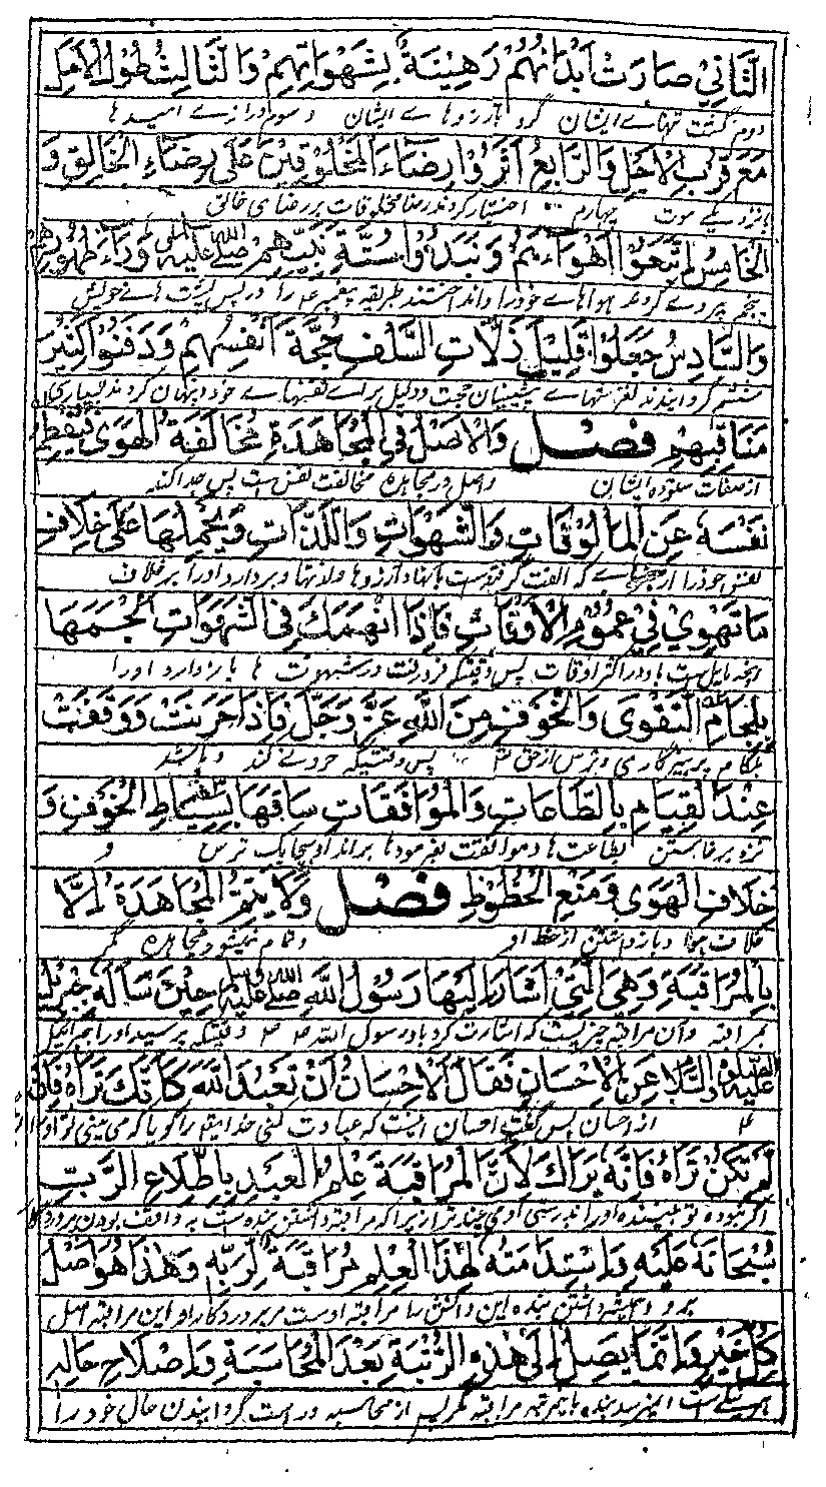 الثَّانِي صَارَتْ اَبْدَانُهُمْ رَهِيْنَةً بِشَهَوَاتِهِمْ وَالثَّالِثُ طُوْلُ الْاَمَلِ
دوم گشت تنهاے ایشان گرو بآرزوهاے ایشان و سوم درازے امیدها
مَعَ قُرْبِ الْاَجَلِ وَالرَّابِعُ اٰثَرُوْا رِضَاءَ الْمَخْلُوْقِيْنَ عَلٰى رِضَاءِ الْخَالِقِ وَ
با نزدیکے موت چهارم اختیار کردند رضا مخلوقات بر رضای خالق
الْخَامِسُ اتَّبَعُوْا اَهْوَاءَهُمْ وَنَبَذُوْا سُنَّةَ نَبِيِّهِمْ صَلَّى اللهُ عَلَيْهِ وَسَلَّمَ وَرَاءَ ظُهُوْرِهِمْ
پنجم پیروے کردند هواهاے خود را و انداختند طریقه پیغمبر را در پس پشت هاے خویش
وَالسَّادِسُ جَعَلُوْا قَلِيْلَ زَلَّاتِ السَّلَفِ حُجَّةَ اَنْفُسِهِمْ وَدَفَنُوْا كَثِيْرَ
ششم گردانیدند لغزشهاے پیشینیان حجت و دلیل براے نفسهاے خود و پنهان کردند بسیاری
مَنَاقِبِهِمْ فصل وَالْاَصْلُ فِي الْمُجَاهَدَةِ مُخَالَفَةُ الْهَوٰى فَيَفْطِمُ
از صفات ستوده ایشان و اصل در مجاهده مخالفت نفس است پس جدا کند
نَفْسَهٗ عَنِ الْمَاْلُوْفَاتِ وَالشَّهَوَاتِ وَاللَّذَّاتِ وَيَحْمِلُهَا عَلٰى خِلَافِ
نفس خود را از که الفت گرفته است بآنها و آرزوها و لذتها و بردارد او را بر خلاف
مَا تَهْوِيْ فِيْ عُمُوْمِ الْاَوْقَاتِ فَاِذَا انْهَمَكَ فِى الشَّهَوَاتِ اَلْجَمَهَا
انچه مایل است باو در اکثر اوقات پس وقتیکه فرو رفت در شهوت ها باز دارد او را
بِلِجَامِ التَّقْوٰى وَالْخَوْفِ مِنَ اللهِ عَزَّ وَجَلَّ فَاِذَا حَرِنَتْ وَوَقَفَتْ
بلگام پرهیزگاری و ترس از حق پس وقتیکه حرونے کند و بایستد
عِنْدَ الْقِيَامِ بِالطَّاعَاتِ وَالْمُوَافَقَاتِ سَاقَهَا بِسِيَاطِ الْخَوْفِ وَ
نزد برخاستن بطاعت ها و موافقت بفرمودها براند او را بچابک ترس و
خِلَافِ الْهَوٰى وَمَنْعِ الْحُظُوْظِ فصل وَلَا يَتِمُّ الْمُجَاهَدَةُ اِلَّا
خلاف هوا و بازداشتن از حظ او و تمام نمیشود مجاهده مگر
بِالْمُرَاقَبَةِ وَهِيَ الَّتِيْ اَشَارَ اِلَيْهَا رَسُوْلُ اللهِ صَلَّى اللهُ عَلَيْهِ وَسَلَّمَ حِيْنَ سَاَلَهٗ جِبْرِيْلُ
بمراقبه و آن مراقبه چیزیست که اشارت کرد باو رسول الله وقتیکه پرسید او را جبرائیل
عَلَيْهِ الصَّلٰوةُ وَالسَّلَامُ عَنِ الْاِحْسَانِ فَقَالَ الْاِحْسَانُ اَنْ تَعْبُدَ اللهَ كَاَنَّكَ تَرَاهُ فَاِنْ
از احسان پس گفت احسان اینست که عبادت کنی خدایرا گویا که می بینی تو او را
لَمْ تَكُنْ تَرَاهُ فَاِنَّهٗ يَرَاكَ لِاَنَّ الْمُرَاقَبَةَ عِلْمُ الْعَبْدِ بِاِطِّلَاعِ الرَّبِّ
اگر نبوده تو بیننده او را بدرستی او می بیند ترا زیرا که مراقبه دانستن بنده است به واقف بودن پروردگار
سُبْحَانَهٗ عَلَيْهِ وَاسْتِدَامَتُهٗ لِهٰذَا الْعِلْمِ مُرَاقَبَةٌ لِرَبِّهٖ وَهٰذَا هُوَ اَصْلُ
برو و همیشه داشتن بنده این دانش را مراقبه اوست مر پروردگار او این مراقبه اصل
كُلِّ خَيْرٍ وَاِنَّمَا يَصِلُ اِلٰى هٰذِهِ الرُّتْبَةِ بَعْدَ الْمُحَاسَبَةِ وَاِصْلَاحِ حَالِهٖ
هر نیکے است نمیرسد بنده باین مرتبه مراقبه مگر پس از محاسبه و راست گردانیدن حال خود را